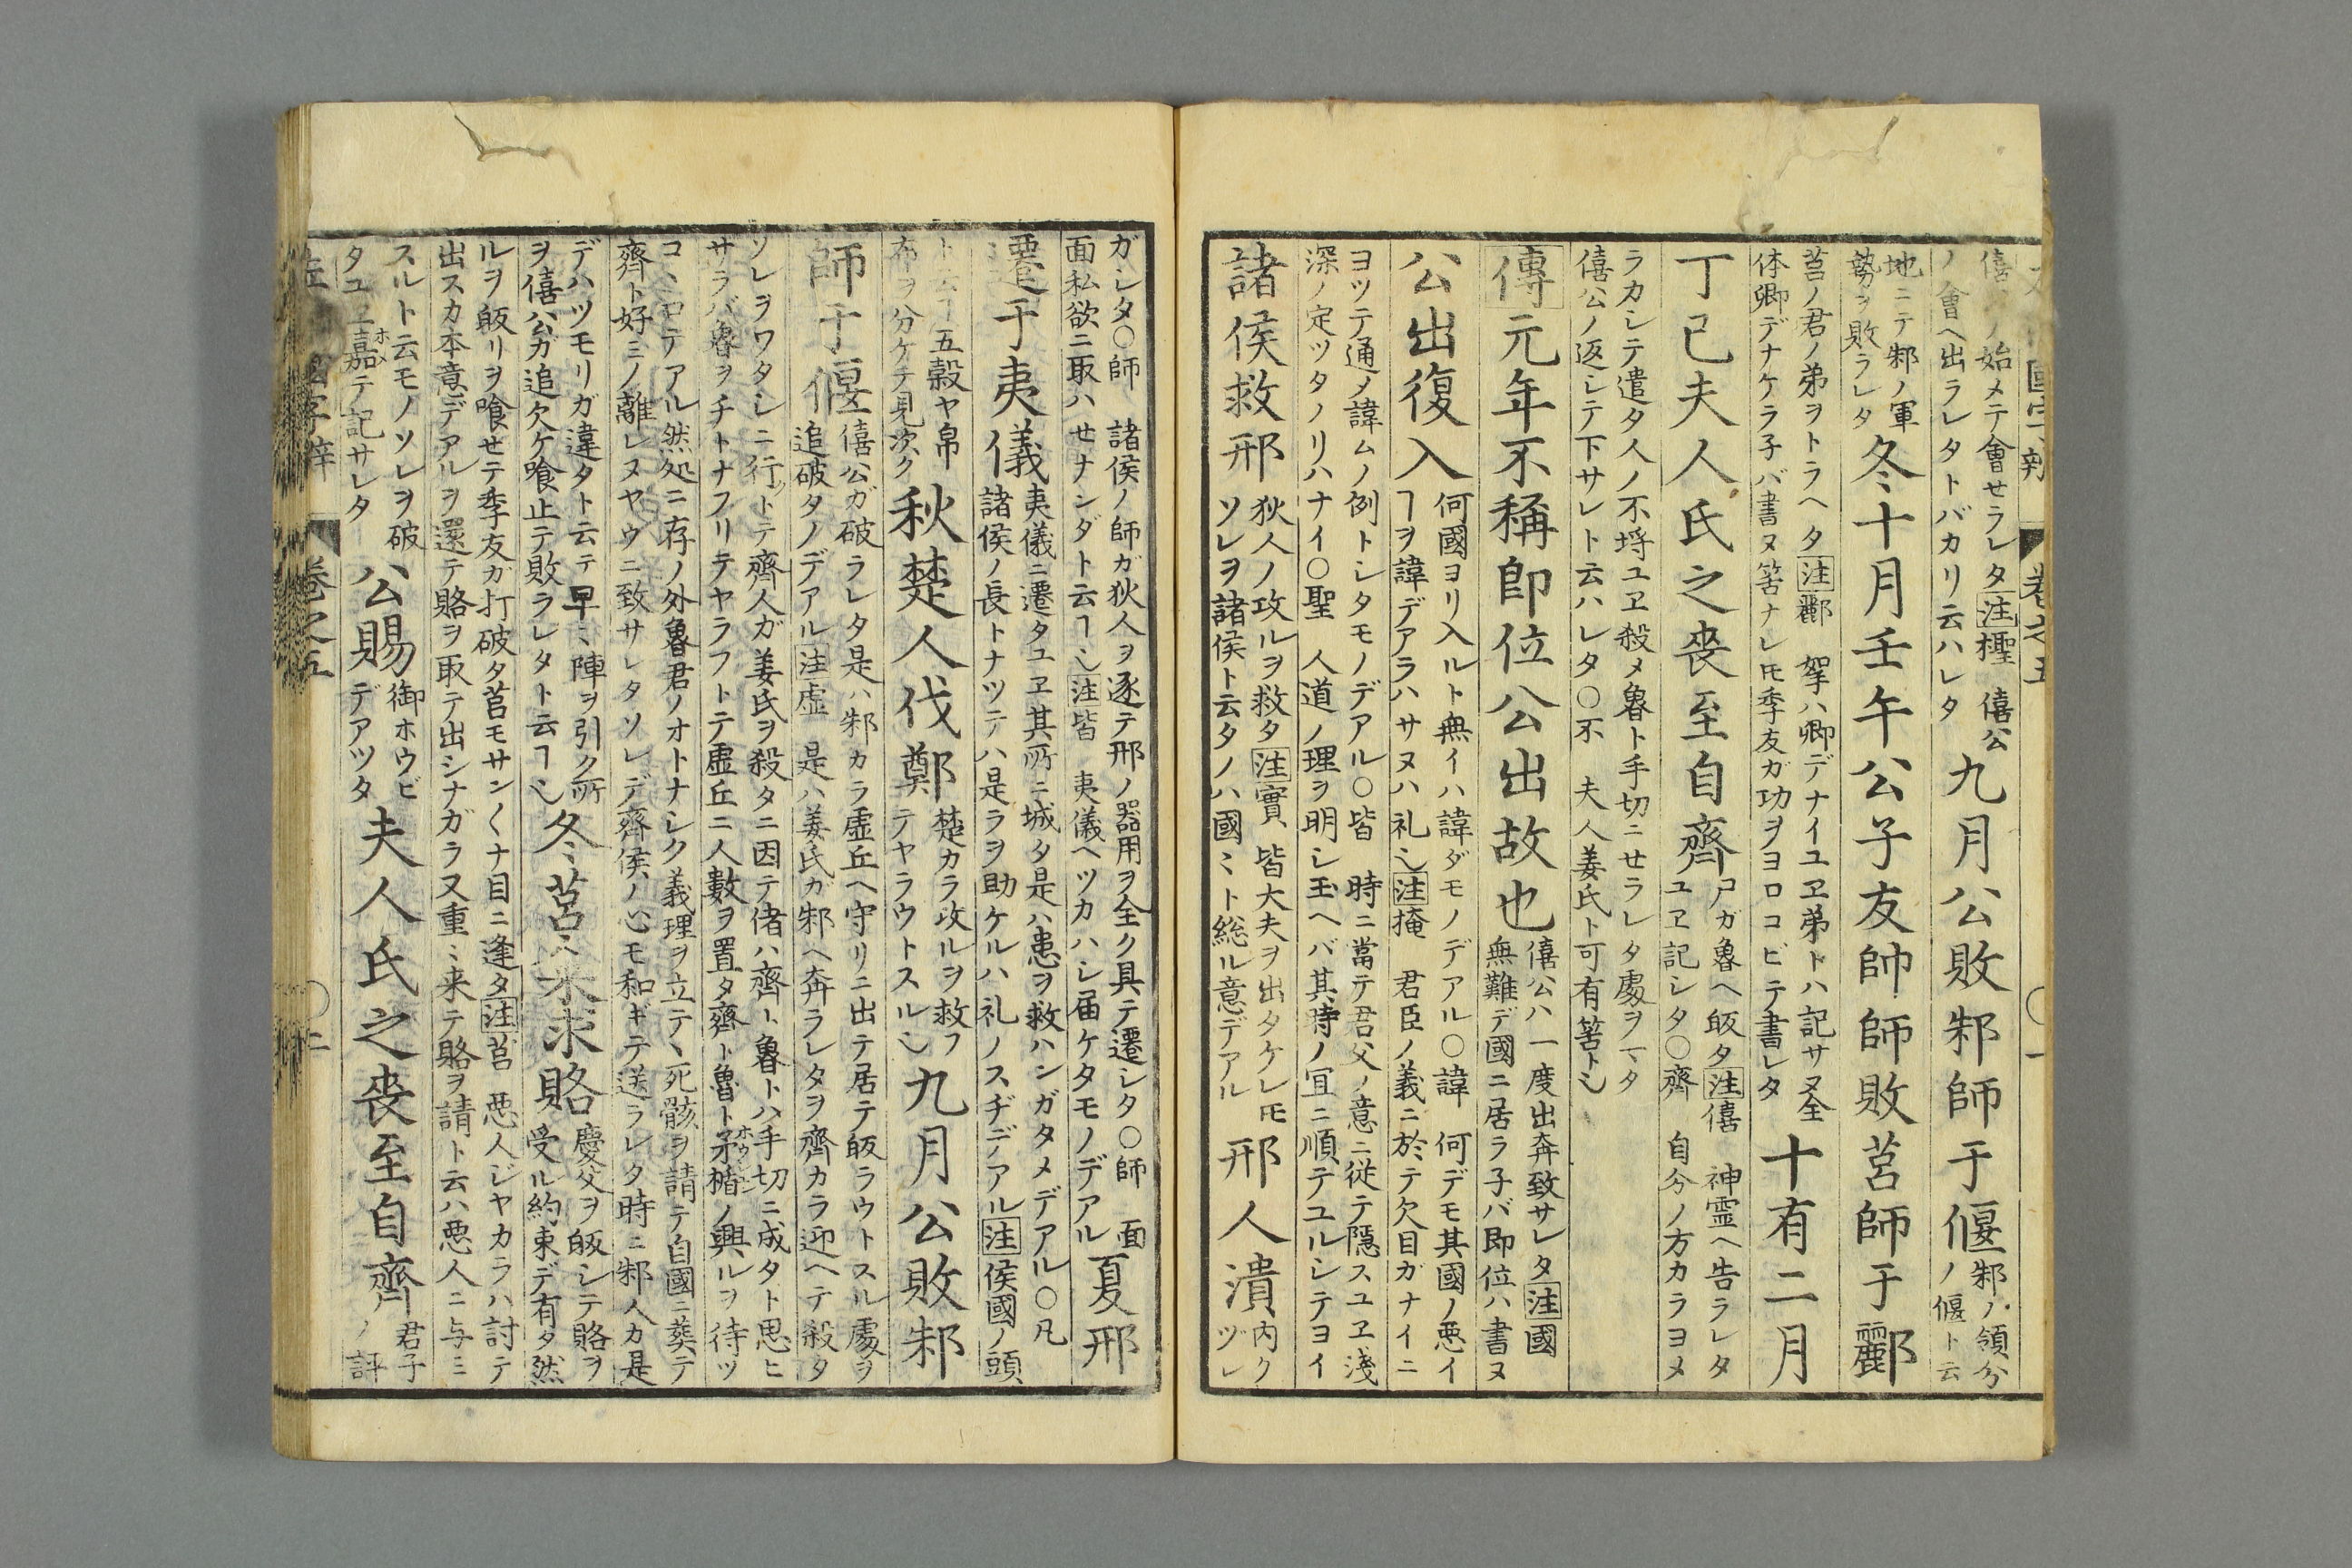 始メテ會セラレタ注檉　僖公
ノ會ヘ出ラレタトバカリ云ハレタ
九月公敗邾師于偃
邾ノ領分
ノ偃ト云
地ニテ邾ノ軍
勢ヲ敗ラレタ
冬十月壬午公子友帥師敗莒師于酈
莒ノ君ノ弟ヲトラヘタ注酈　挐ハ卿デナイユヱ弟トハ記サヌ全
体卿デナケラ子バ書ヌ筈ナレ𪜈季友ガ功ヲヨロコビテ書レタ
十有二月
丁已夫人氏之喪至自齊
ガ魯ヘ皈タ注僖　神霊ヘ告ラレタ
ユヱ記シタ○齊　自分ノ方カラヨメ
ラカシテ遣タ人ノ不埒ユヱ殺メ魯ト手切ニセラレタ處ヲマタ
僖公ノ返シテ下サレト云ハレタ○不　夫人姜氏ト可有筈ト乀
傳元年不稱卽位公出故也
僖公ハ一度出奔致サレタ注國
無難デ國ニ居ラ子バ即位ハ書ヌ
公出復入
何國ヨリ入ルト無イハ諱ダモノデアル○諱　何デモ其國ノ悪イ
ヿヲ諱デアラハサヌハ礼乀注掩　君臣ノ義ニ於テ欠目ガナイニ
ヨツテ通メ諱ムノ例トシタモノデアル○皆　時ニ當テ君父ノ意ニ従テ隠スユヱ淺
深ノ定ツタノリハナイ○聖　人道ノ理ヲ明シ玉ヘバ其時ノ冝ニ順テユルシテヨイ
諸侯救邢
狄人ノ攻ルヲ救タ注實　皆大夫ヲ出タケレ𪜈
ソレヲ諸侯ト云タノハ國〻ト総ル意デアル
邢人潰
内ク
ヅレ
ガシタ○師　諸侯ノ師ガ狄人ヲ逐テ邢ノ器用ヲ全ク具テ遷シタ○師　面
面私欲ニ取ハセナンダト云ヿ乀注皆　夷儀ヘツカハシ届ケタモノデアル
夏邢
遷于夷儀
夷儀ニ遷タユヱ其所ニ城タ是ハ患ヲ救ハンガタメデアル○凡
諸侯ノ長トナツテハ是ラヲ助ケルハ礼ノスヂデアル注侯國ノ頭
ト云ヿ五穀ヤ帛
布ヲ分ケテ見次ク
秋楚人伐鄭
楚カラ攻ルヲ救フ
テヤラウトスル乀
九月公敗邾
師于偃
僖公ガ破ラレタ是ハ邾カラ虚丘ヘ守リニ出テ居テ皈ラウトスル處ヲ
追破タノデアル注虚　是ハ姜氏ガ邾ヘ奔ラレタヲ齊カラ迎ヘテ殺タ
ソレヲワタシニ行トテ齊人ガ姜氏ヲ殺タニ因テ偖ハ齊ト魯トハ手切ニ成タト思ヒ
サラバ魯ヲチトナフリテヤラフトテ虚丘ニ人數ヲ置タ齊ト魯ト矛楯ノ興ルヲ待ツ
テアル然処ニ存ノ外魯君ノオトナシク義理ヲ立テヽ死骸ヲ請テ自國ニ葬テ
齊ト好ミノ離レヌヤウニ致サレタソレデ齊侯ノ心モ和ギテ送ラレタ時ニ邾人カ是
デハツモリガ違タト云テ早〻陣ヲ引ク所
ヲ僖公ガ追欠ケ喰止テ敗ラレタト云ヿ乀
冬莒人来求賂
慶父ヲ皈シテ賂ヲ
受ル約束デ有タ然
ルヲ皈リヲ喰セテ季友ガ打破タ莒モサン〱ナ目ニ逢タ注莒　悪人ジヤカラハ討テ
出スカ本意デアルヲ還テ賂ヲ取テ出シナガラ又重〻来テ賂ヲ請ト云ハ悪人ニ与ミ
スルト云モノソレヲ破
タユヱ嘉テ記サレタ
公賜
御ホウビ
デアツタ
夫人氏之喪至自齊
君子
ノ評